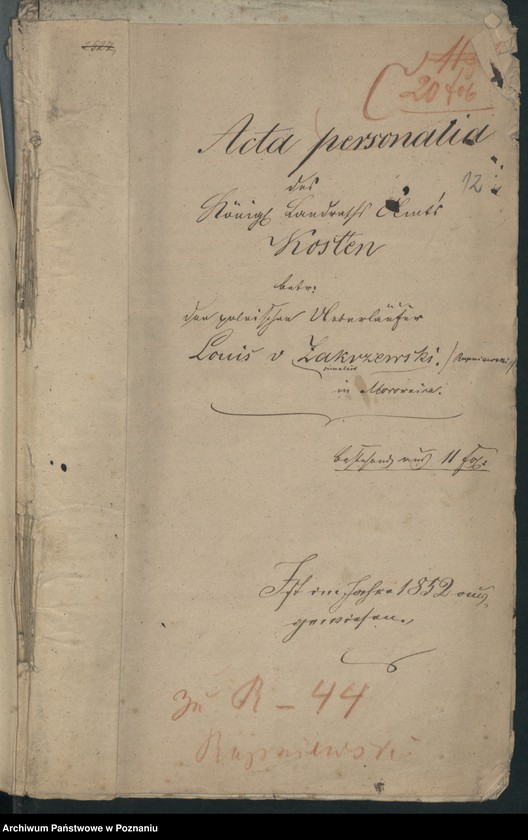 2527
119
20 fol
Acta personalia
12
des
Königl Landraths Amts
Kosten
betr:
den polnischen Ueberläufer
Louis v Zakrzewski.
simulirt
in
bestehend aus 11 Fol:
Ist im Jahre 1852 aus,
gewiesen.,
Zu R - 44
Archiwum Państwowe w Poznaniu